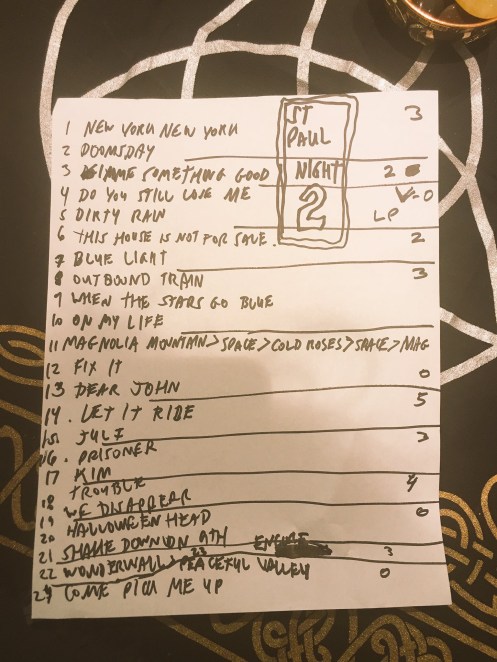 ST
PAUL
NIGHT
2
1 NEW YORK NEW YORK 3
2 DOOMSDAY
3 GIMME SOMETHING GOOD 2
4 DO YOU STILL LOVE ME V-0
5 DIRTY RAIN LP
6 THIS HOUSE IS NOT FOR SALE. 2
7 BLUE LIGHT
8 OUTBOUND TRAIN 3
9 WHEN THE STARS GO BLUE
10 OH MY LIFE
11 MAGNOLIA MOUNTAIN > SPACE > COLD ROSES > SPACE > MAG
12 FIX IT 0
13 DEAR JOHN
14. LET IT RIDE 5
15 JULI
16. PRISONER
17 KIM
18 TROUBLE 4
19 WE DISAPPEAR
20 HALLOWEEN HEAD 0
21 SHAKE DOWN ON 9TH
22 WONDERWALL > 23 PEACEFUL VALLEY 3
24 COME PICK ME UP 0